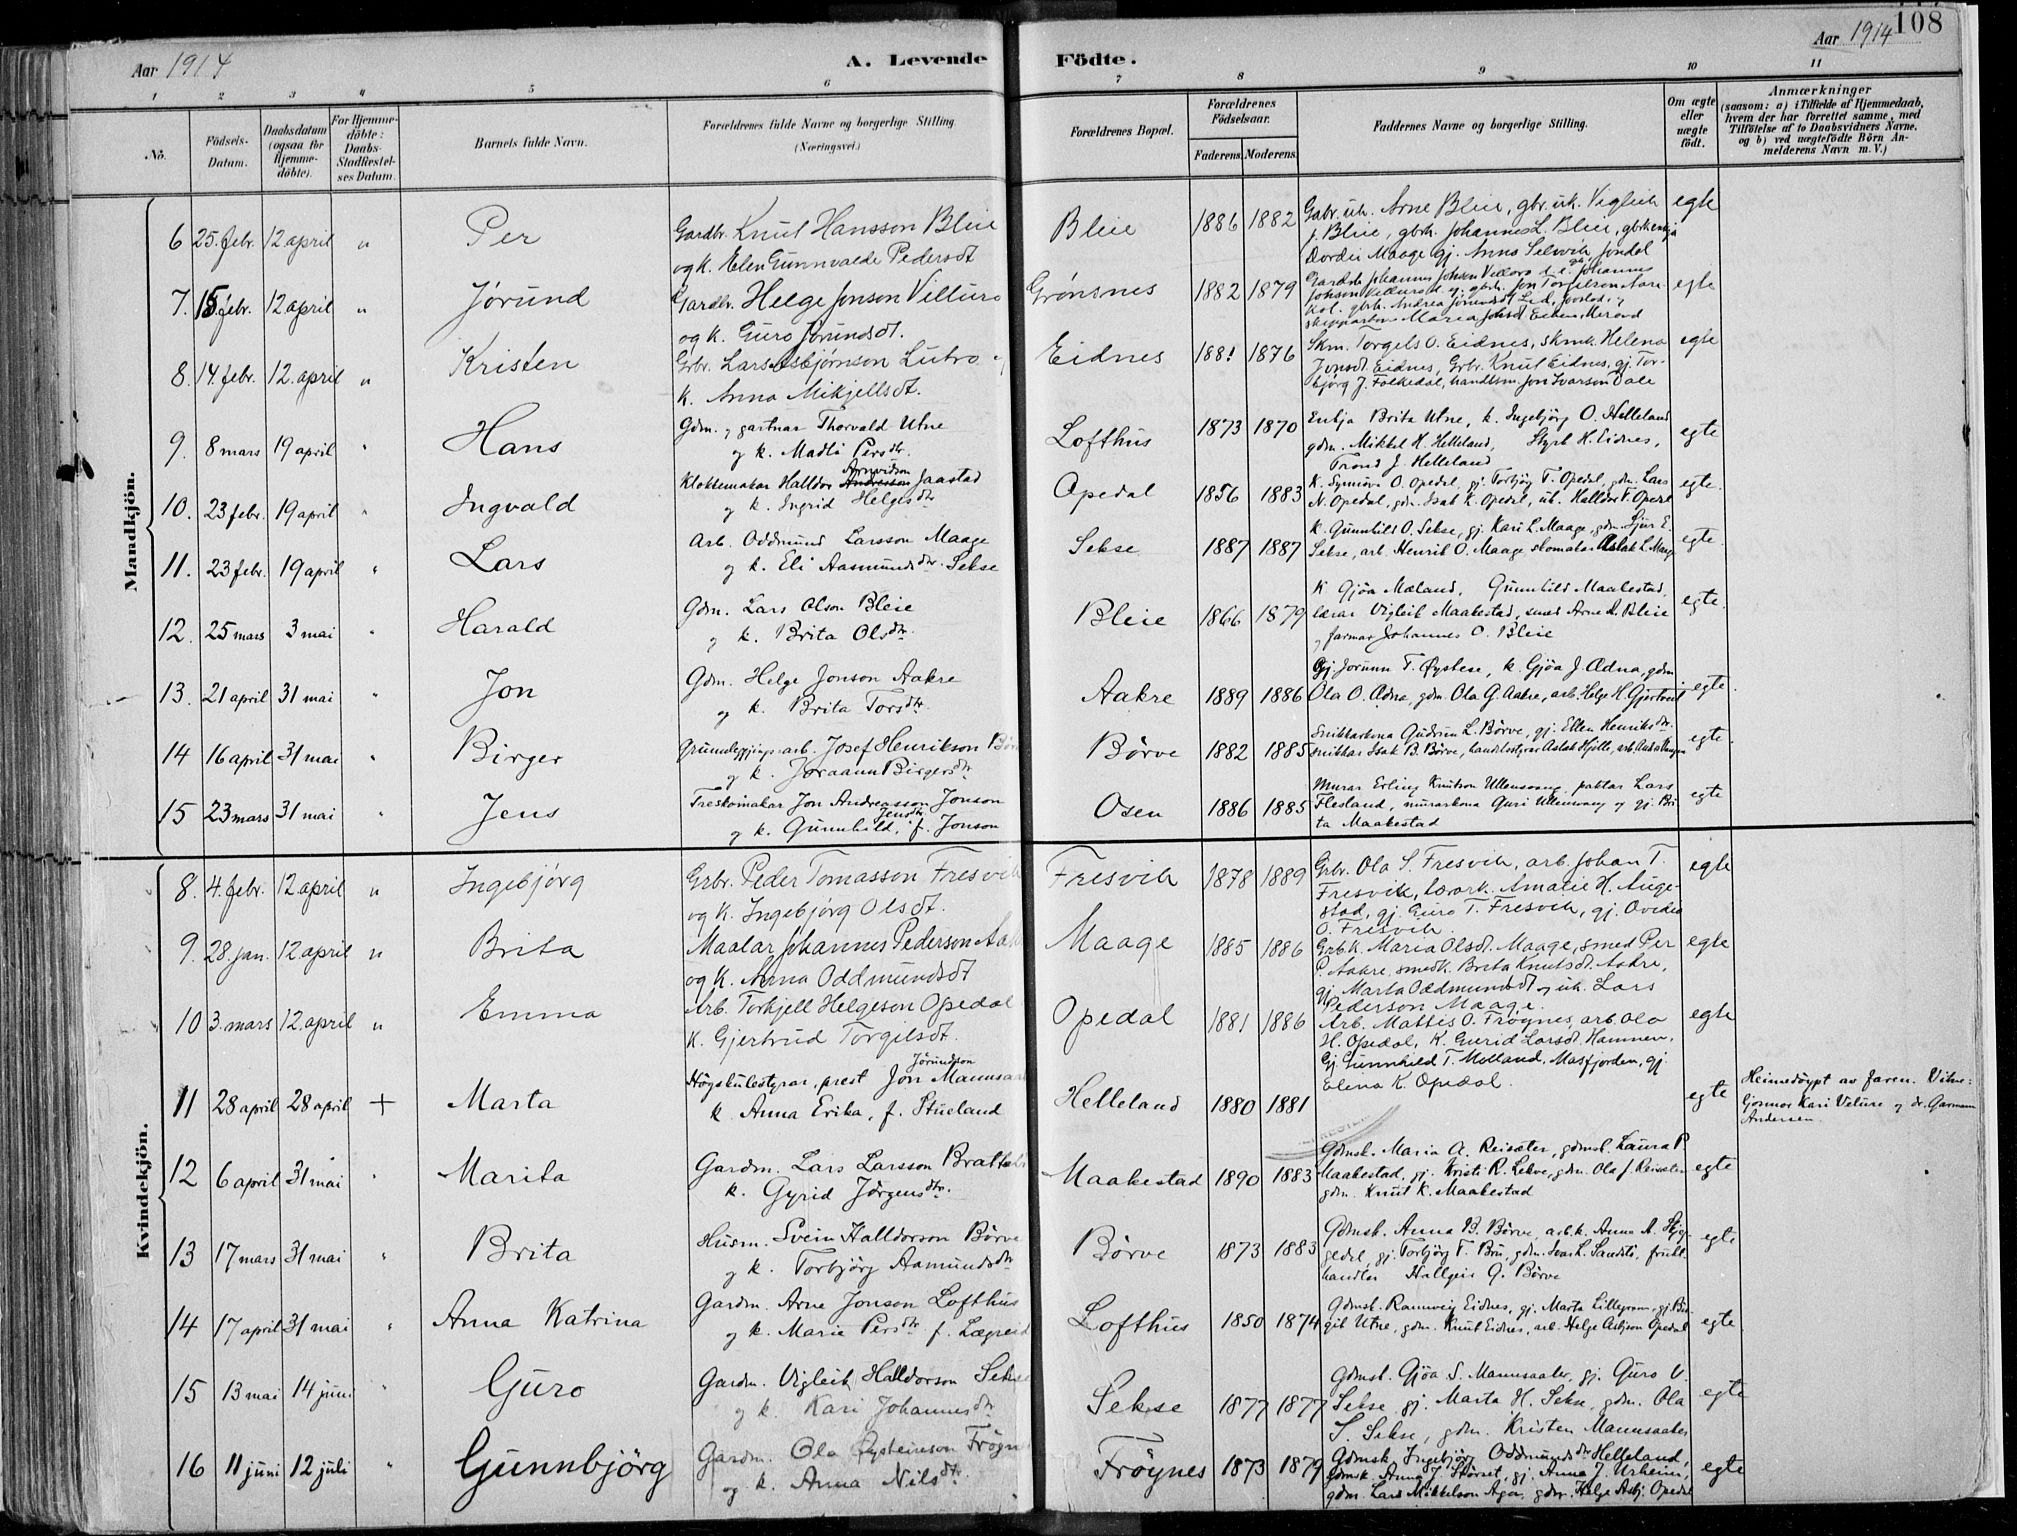 108
Aar 1914
A. Levende Födte.
Aar 1914
1 2 3 4 5 6 7 8 9 10 11
No.
Födsels-Datum.
Daabsdatum (ogsaa for Hjemme-döbte).
For Hjemme-döbte: Daabs-Stadfæstel-ses Datum.
Barnets fulde Navn.
Forældrenes fulde Navne og borgerlige Stilling
(Næringsvei.)
Forældrenes Bopæl.
Forældrenes Födselsaar.
Faderens. Moderens.
Faddernes Navne og borgerlige Stilling.
Om ægte eller uægte födt.
Anmærkninger
(saasom: a) i Tilfælde af Hjemmedaab, hvem der har forrettet samme, med Tilföielse af to Daabsvidners Navne, og b) ved uægtefödte Börn An-melderens Navn m. V.)
Mandkjön.
6 25. febr. 12 april " Per Gardbr. Knut Hansson Bleie Bleie 1886 1882 Arne Bleie, egte
og k. Elen Gunnvalde Pedersdt J. Bleie, gbrk. Johannes L. Bleie,
Maage gj. Anna Selsvik, Jondal
7. 15 febr. 12 april " Jórund Gardbr. Helge Jonson Villure Grónsnes 1882 1879 egte
og k. Guro Jórundsdt.
8. 14. febr. 12. april " Kristen Grbr. Lars Asbjørnson Lutro Eidnes 1881 1876 Skm. Torgels O. Eidnes, skmk. Helena egte
k. Anna Mikjellsdt. Jonsdt. Eidnes, Grbr. Knut Eidnes, gj. Tor-
bjórg J. Folkedal, handlsm. Jon Ivarson Dale
9. 8 mars 19 april " Hans Gdm. og gartnar Thorvald Utne Lofthus 1873 1870 Enkja Brita Utne, k. Ingebjörg O. Helleland egte
og k. Madli Persdtr. gdm. Mikkel H. Helleland, Styrk H. Eidnes,
Trond J. Helleland
10. 23 febr. 19 april " Ingvald Klokkemakar Halldor Arnvidson Jaastad Opedal 1856 1883 K. Synnöva O. Opedal, gj. Torbjörg T. Opedal, gdm. Lars egte.
og k. Ingrid Helgesdtr N. Opedal, gdm. Isak K. Opedal, uk. Halldor T. Opedal
11. 23 febr. 19 april " Lars Arb. Oddmund Larsson Maage Sekse 1887 1887 K. Gunnhild O. Sekse, gj. Kari L. Maage, gdm. Sjur E. egte.
og k. Eli Aasmundsdtr. Sekse Sekse, arb. Henrik O. Maage skomakar Aslak L. Maage
12. 25 mars 3 mai " Harald Gdm. Lars Olson Bleie Bleie 1866 1879 K Gjöa Mæland, Gunnhild Maakestad, egte.
og k. Brita Olsdtr. lærar Vigleik Maakestad, smed Arne A. Bleie
og farmar Johannes O. Bleie
13. 21 april 31 mai " Jon Gdm. Helge Jonson Aakre Aakre 1889 1886 Gj. Jorunn T. Øystese, k. Gjöa J. Ædna, gdm egte.
og k. Brita Torsdtr. Ola O. Ædna, gdm Ola G. Aakre, arb. Helge H. Gjertveit
14 16 april 31 mai " Birger Grunnleggjings-arb. Josef Henrikson Börve Börve 1882 1885 Snikkarkona Gudrun L. Börve, gj. Ellen Henriksdtr. egte.
og k. Joraann Birgersdtr snikkar Isak B. Börve, handelsstyrar Aslak Hjelle, arb.
15 23 mars 31 mai " Jens Treskomakar Jon Andreasson Jonson Osen 1886 1885 Murar Erling Knutson Ullensvang, paktar Lars egte
og k. Gunnhild Jensdtr, f. Jonson Flesland, murarkona Guri Ullensvang og gj. Bri-
ta Maakestad
Kvindekjön.
8. 4. febr. 12 april " Ingebjórg Grbr. Peder Tomasson Fresvik Fresvik 1878 1889 Grbr. Ola S. Fresvik, arb. Johan T. egte
og k. Ingebjórg Olsdt. Fresvik, lærark. Amalie H. Auge-
stad, gj. Guro T. Fresvik, gj. Ovidia
O. Fresvik.
9. 28. jan. 12 april " Brita Maalar Johannes Pederson Aakre Maage 1885 1886 Grbk. Maria Olsdt. Maage, smed Per egte
og k. Anna Oddmundsdt P. Aakre, smedk. Brita Knutsdt. Aakre,
gj. Marta Oddmundsdt og uk. Lars
Pederson Maage.
10 3. mars 12 april " Emma Arb. Torkjell Helgeson Opedal Opedal 1881 1886 Arb. Mattis O. Frøynes, arb. Ola egte
k. Gjertrud Torgilsdt. H. Opedal, k. Gurid Larsdt. Hammen,
Gj. Gunnhild T. Molland, Masfjorden, gj.
Elena K. Opedal.
11 28 april 28 april + Marta Högskulestyrar, prest Jon Jörundson Mannsaaker Helleland 1880 1881 egte Heimedöypt av faren. Vitne:
k. Anna Erika, f. Stueland Gjosmor Kari Velure og dr. Garmann
Andersen.
12 6 april 31 mai " Marita Gardm. Lars Larsson Brattabö Maakestad 1890 1883 Gdmsk. Maria A. Reisæter, gdmsk. Laura P. egte
k. Gyrid Jörgensdtr. Maakestad, gj. Kristi R. Lekve, gdm. Ola J. Reisæter
gdm. Knut K. Maakestad
13 17 mars 31 mai " Brita Husm. Svein Halldorson Börve Börve 1873 1883 Gdmsk. Anna B. Börve, arb.k. Anna A. Skjeg- egte
og k. Torbjörg Aamundsdtr gedal, gj. Torbjörg T. Bu, gdm. Ivar L. Sandstö, frukt-
handlar Hallgeir G. Börve
14 17 april 31 mai " Anna Katrina Gardm. Arne Jonson Lofthus Lofthus 1850 1874 Gdmsk. Rannveig Eidnes, gj. Marta Lillegraven, gj. Bir- egte.
og k. Marie Persdtr f. Lægreid git Utne, gdm. Knut Eidnes, arb. Helge Asbjson Opedal
15 13 mai 14 juni " Guro Gardm. Vigleik Halldorson Sekse Sekse 1877 1877 Gdmsk. Gjöa S. Mannsaaker, gj. Guro V. egte
og k. Kari Johannesdtr Sekse gj. Marta H. Sekse, gdm. Ola
S. Sekse, gdm. Kristen Mannsaaker
16 11 juni 12 juli " Gunnbjörg Gardm. Ola Øysteinson Fröynes Fröynes 1873 1879 Gdmsk Ingebjörg Oddmundsdtr Helleland, egte
og k. Anna Nilsdtr. Gdmsk. Anna J. Skårset, gj. Anna J. Urheim,
gdm. Lars Mikkelson Aga, gdm. Helge Asbj. Opedal